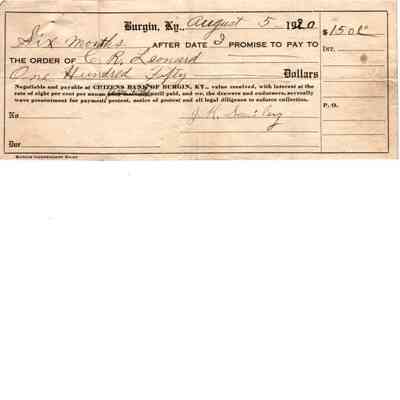 Burgin, Ky., August 5 1920 $150.00
Six months AFTER DATE I PROMISE TO PAY TO
THE ORDER OF C. R. Leonard INT.
One Hundred Fifty Dollars
Negotiable and payable at CITIZENS BANK OF BURGIN, KY., value received, with interest at the
rate of eight per cent per annum until paid, and we, the drawers and endorsers, severally
wave presentment for payment, protest, notice of protest and all legal diligence to enforce collection.
P. O.
No
J. K.
Due